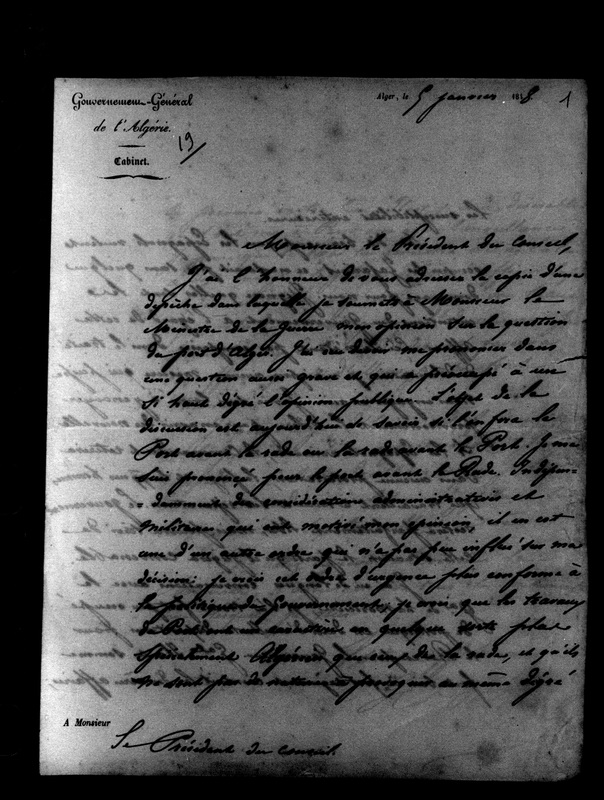 Gouvernement-Général
de l'Algérie.
Cabinet.
19/
Alger, le 5 janvier 1848.
1
Monsieur le Président du Conseil,
J'ai l'honneur de vous adresser la copie d'une
dépêche dans laquelle je soumets à Monsieur le
Ministre de la Guerre mon opinion sur la question
du port d'Alger. J'ai du me prononcer dans
une question aussi grave et qui a préoccupé à un
si haut dégré l'opinion publique. L'objet de la
discussion est aujourd'hui de savoir si l'on fera le
Port avant la rade ou la rade avant le Port. Je me
suis prononcé pour le port avant la Rade. Indépen-
-damment des considérations administratives et
militaires qui ont motivé mon opinion, il en est
une d'un autre ordre qui n'a pas peu influé sur ma
décision: je crois cet ordre d'urgence plus conforme à
la politique du Gouvernement, je crois que les travaux
du Port ont un caractère en quelque sorte plus
spécialement Algérien que ceux de la rade, et qu'ils
ne sont pas de nature à provoquer au même dégré
A Monsieur
Le Président du Conseil.